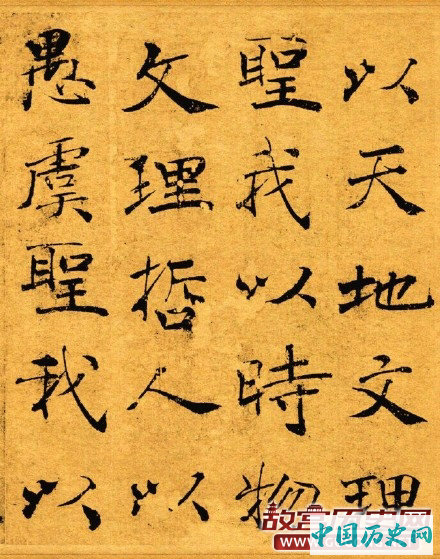 以天地文理
聖我以時物
文理哲人以
愚虞聖我以
故宫历史网
中国历史网